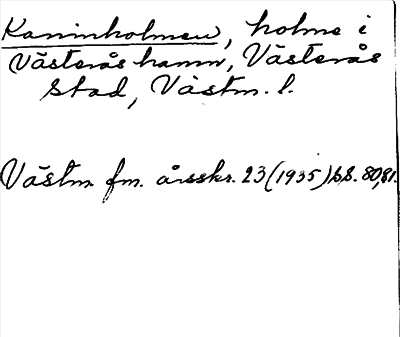 Kaninholmen, holme i
Västerås hamn, Västerås
stad, Västm. l.
Västm. fm. årsskr. 23 (1935), s. 80, 81.